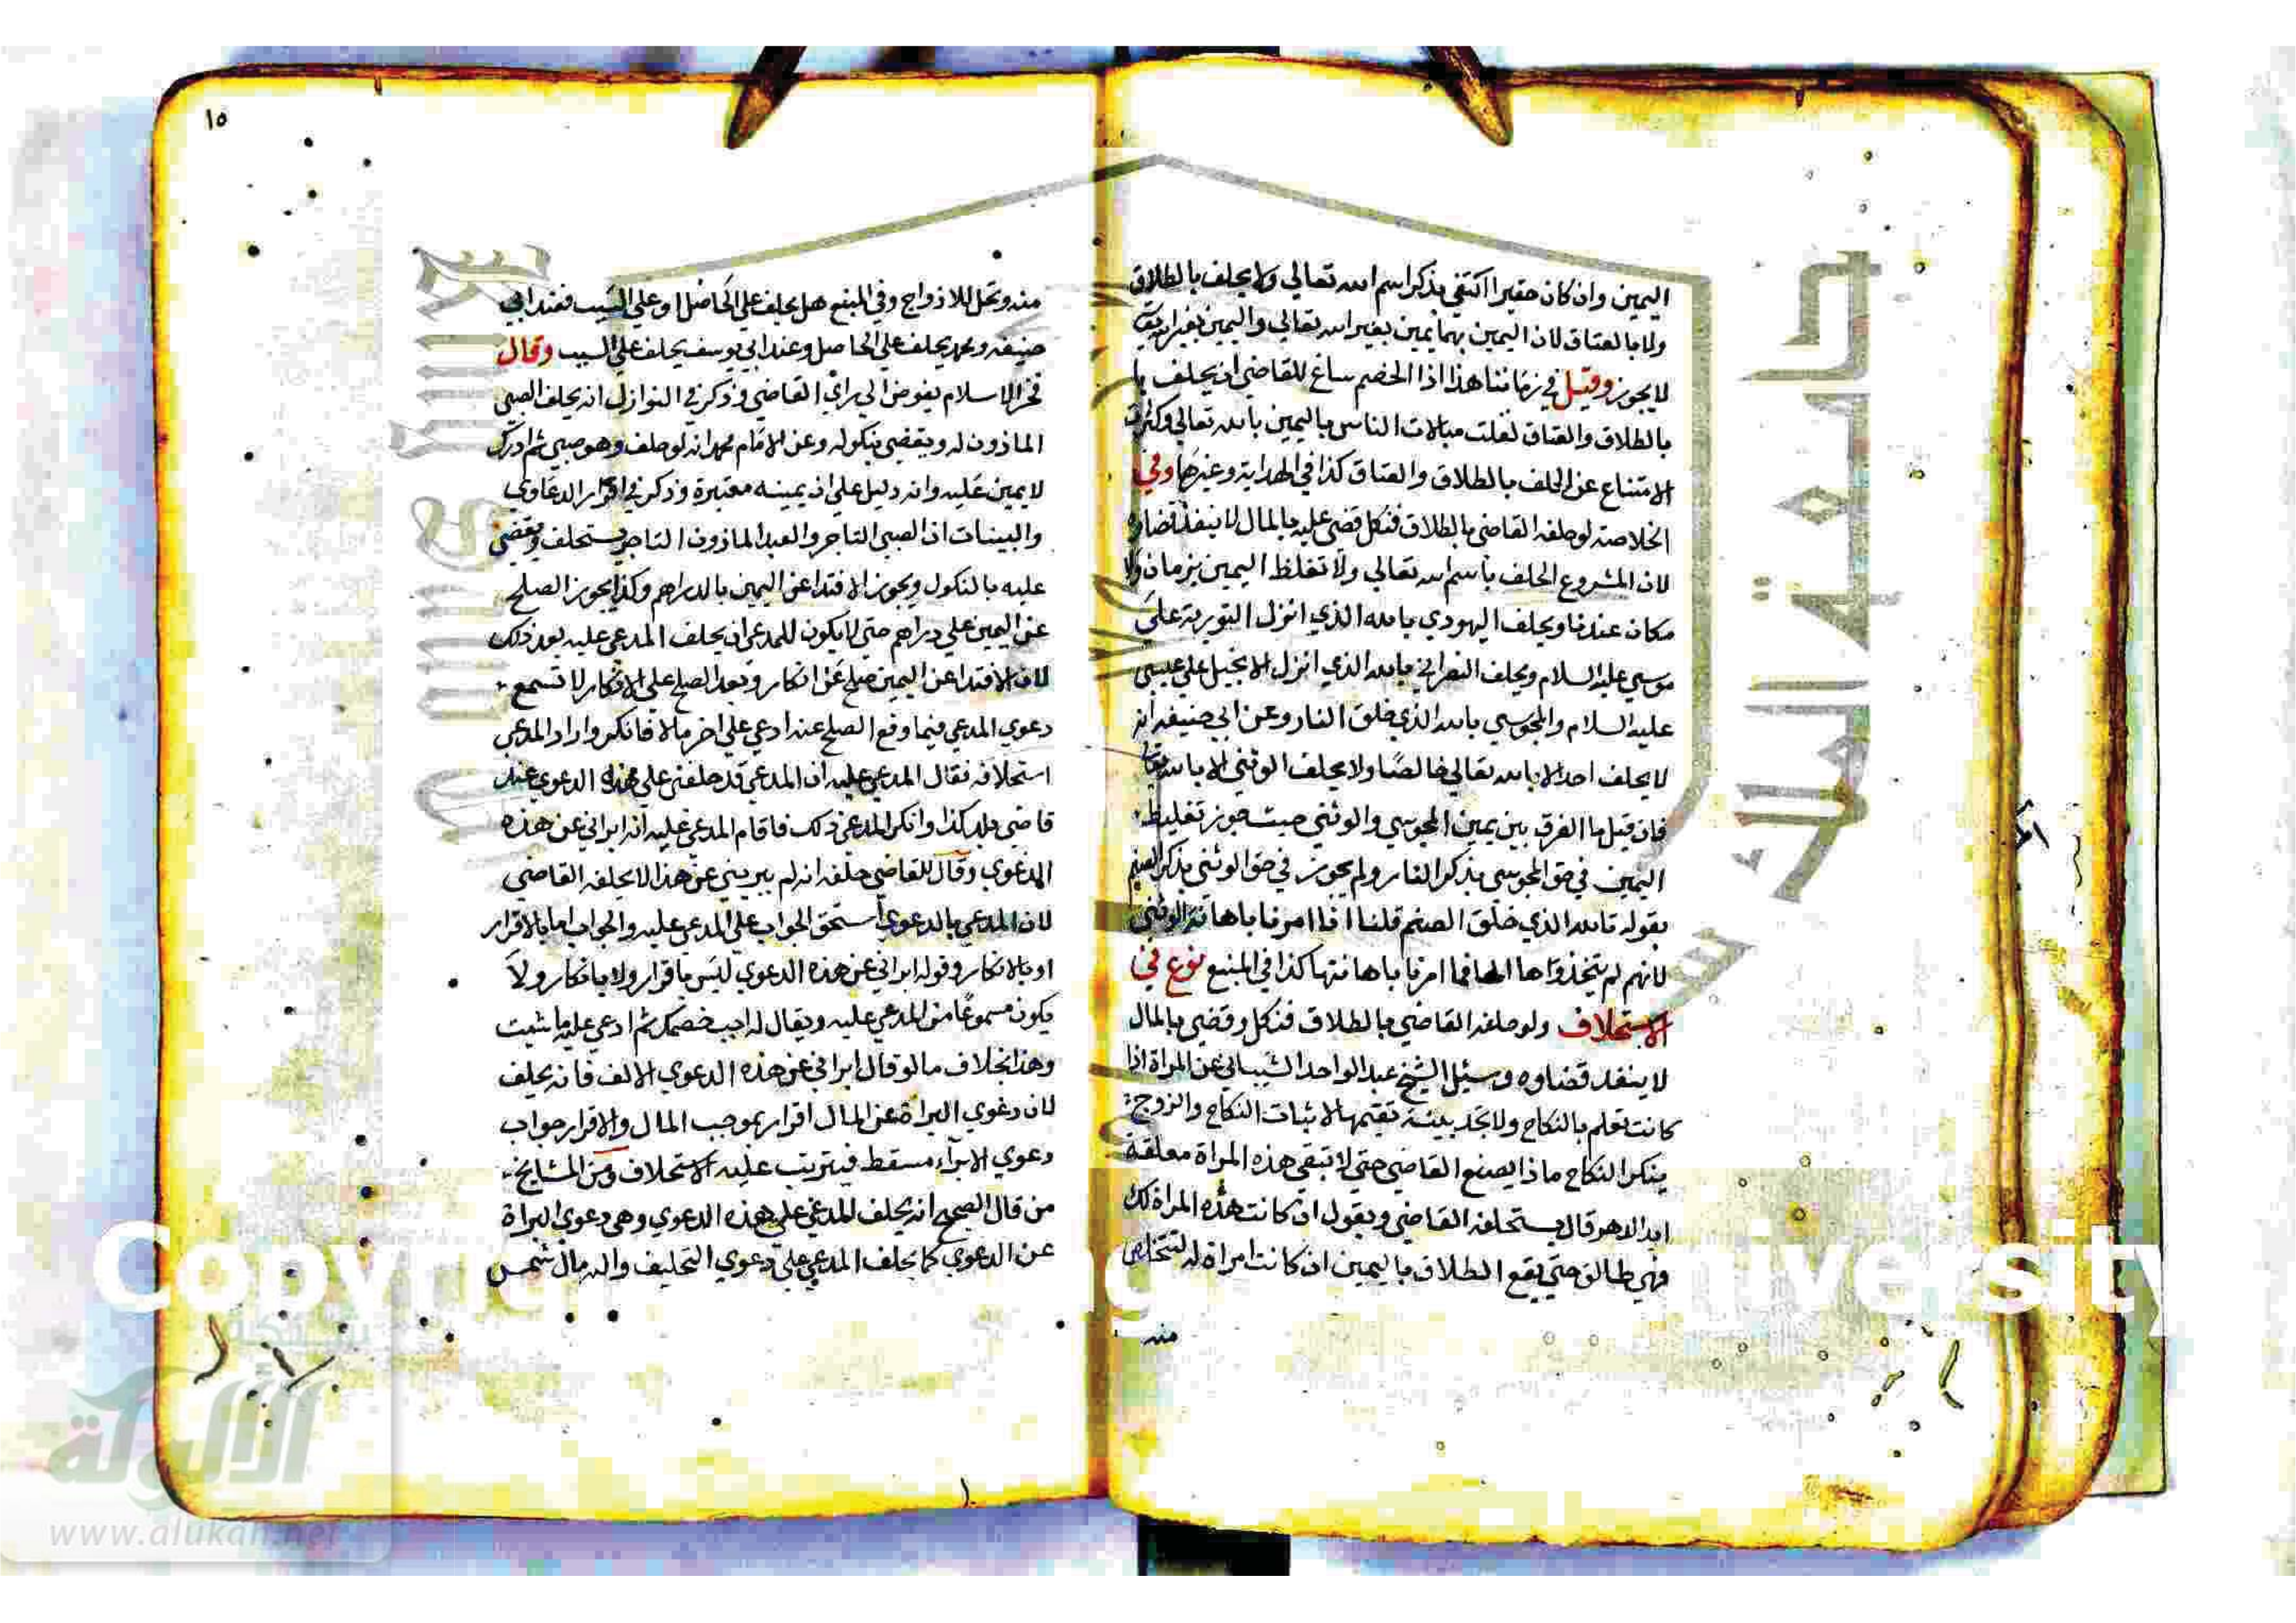 اليمين وان كان حقيرا اكتفي بذكر اسم الله تعالي ولا يحلف بالطلاق
ولا بالعتاق لان اليمين بهما يمين بغير الله تعالي واليمين بغير الله
لا يجوز وقيل في زماننا هذا اذا الخصم ساغ للقاضي ان يحلف با
بالطلاق والعتاق لقلت مبالات الناس باليمين بالله تعالي وكثرت
الامتناع عن الحلف بالطلاق والعتاق كذا في الهداية وغيرها وفي
الخلاصة لو حلفه القاضي بالطلاق فنكل قضي عليه بالمال لا ينفذ قضاوه
لان المشروع الحلف باسم الله تعالي ولا تغلظ اليمين بزمان ولا
مكان عندنا ويحلف اليهودي بالله الذي انزل التورية علي
موسي عليه السلام ويحلف النصراني بالله الذي انزل الانجيل علي عيسي
عليه السلام والمجوسي بالله الذي خلق النار وعن ابي حنيفه انه
لا يحلف احد الا بالله تعالي خالصا ولا يحلف الوثني الا بالله تعالي
فان قيل ما الفرق بين يمين المجوسي والوثني حيث جوز تغليظ
اليمين في حق المجوسي بذكر النار ولم يجوز في حق الوثني بذكر الصنم
بقوله تالله الذي خلق الصنم قلنا انا امرنا باهانة الوثني
لانهم لم يتخذواها الها فما امرنا باهانتها كذا في المنبع نوع في
الاستحلاف ولو حلفه القاضي بالطلاق فنكل وقضي بالمال
لا ينفد قضاوه وسئل الشيخ عبد الواحد الشيباني عن المراة اذا
كانت تعلم بالنكاح ولا تجد بينة تقيمها لاثبات النكاح والزوج
ينكر النكاح ماذا يصنع القاضي حتي لا تبقي هذه المراة معلقة
ابد الدهر قال يستحلفه القاضي ويقول ان كانت هذه المراة لك
فهي طالق حتي يقع الطلاق باليمين ان كانت امراة له لتتخلص
منه
١٥
منه وتحل للازواج وفي المنبع هل يحلف علي الحاصل او علي السبب فعند ابي
حنيفه ومحمد يحلف علي الحاصل وعند ابي يوسف يحلف علي السبب وقال
فخر الاسلام يفوض الي راي القاضي وذكر في النوازل انه يحلف الصبي
الماذون له ويقضي بنكوله وعن الامام محمد انه لو حلف وهو صبي ثم ادرك
لا يمين عليه وانه دليل علي ان يمينه معتبرة وذكر في اقرار الدعاوي
والبينات ان الصبي التاجر والعبد الماذون التاجر يستحلف ويقضي
عليه بالنكول ويجوز الافتدا عن اليمين بالدراهم وكذا يجوز الصلح
عن اليمين علي دراهم حتي لا يكون للمدعي ان يحلف المدعي عليه بعد ذلك
لان الافتدا عن اليمين صلح عن انكار وبعد الصلح علي الانكار لا تسمع
دعوي المدعي فيما وقع الصلح عنه ادعي علي اخر مالا فانكر واراد المدعي
استحلافه فقال المدعي عليه ان المدعي قد حلفني علي هذه الدعوي عند
قاضي بلد كذا وانكر المدعي ذلك فاقام المدعي عليه انه ابراني عن هذه
الدعوي وقال للقاضي حلفه انه لم يبريني عن هذا لا يحلفه القاضي
لان المدعي بالدعوي استحق الجواب علي المدعي عليه والجواب اما بالاقرار
او بالانكار وقوله ابراني عن هذه الدعوي ليس باقرار ولا بانكار ولا
يكون مسموعا من المدعي عليه ويقال له اجب خصمك ثم ادعي عليه ما شيت
وهذا بخلاف ما لو قال ابراني عن هذه الدعوي الالف فانه يحلف
لان دعوي البراة عن المال اقرار بموجب المال والاقرار جواب
دعوي الابراء مسقط فيترتب عليه الاستحلاف ومن المشايخ
من قال الصحيح انه يحلف المدعي علي هذه الدعوي وهي دعوي البراة
عن الدعوي كما يحلف المدعي علي دعوي التحليف واليه مال شمس
جامعة الملك سعود
شبكة
الألوكة
www.alukah.net